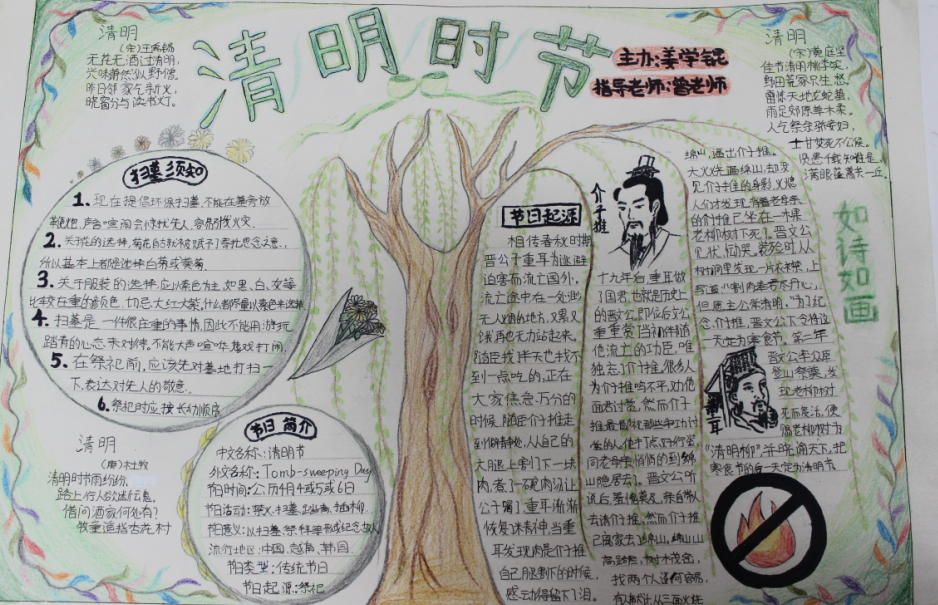 清明时节
主办:姜学锟
指导老师:曾老师
清明
(宋)王禹偁
无花无酒过清明,
兴味萧然似野僧.
昨日邻家乞新火,
晓窗分与读书灯.
清明
(宋)黄庭坚
佳节清明桃李笑,
野田荒冢只生愁
雷惊天地龙蛇蛰,
雨足郊原草木柔.
人乞祭余骄妾妇,
士甘焚死不公候.
满眼蓬蒿共一丘.
如诗如画
扫墓须知
1.现在提倡环保扫墓,不能在墓旁放
鞭炮,声会惊扰先人,容易引火灾
2.关于花的选择,菊花自古就被赋予了寄托思念之意,
所以基本上都是选择白菊或黄菊.
3.关于服装的选择,应以素色为主,如黑、白、灰等
比较庄重的颜色,切忌大红大紫,
4.扫墓是一件很庄重的事情,因此不能用游玩
踏青的心态来对待,不能大声喧哗、嬉戏打闹.
5.在祭祀前,应该先对墓地打扫一
下,表达对先人的敬意.
6.祭祀时应按长幼顺序
清明
(唐)杜牧
清明时节雨纷纷,
路上行人欲断魂.
借问酒家何处有?
牧童遥指杏花村
节日简介
中文名称:清明节
外文名称:Tomb-sweeping Day
节日时间:公历4月4或5或6日
节日活动:祭火,扫墓,踏青,插柳
流行地区:中国,越南,韩国
节日类型:传统节日
节日起源:祭祀
节日起源
相传春秋时期
晋公子重耳为逃避
迫害而流亡国外,
流亡途中在一处渺
无人烟的地方,又累又
饿再也无力站起来,
随臣找半天也找不
到一点吃的,正在
大家焦急万分的
时候,随臣介子推走
到僻静处,从自己的
大腿上割下一块
肉,煮了一碗肉汤让
公子喝了,重耳渐渐
恢复精神,当重
耳发现肉是介子推
自己腿割下的时候,
感动得留下了泪.
介子推
十九年后,重耳做
了国君,也就是历史上
的晋文公,即位后文公
重重赏了当初伴随
他流亡的功臣,唯
独忘了介子推,很多人
为介子推鸣不平,劝他
面君讨赏,然而介子
推最鄙视那些争功讨
赏的人,他打点好行装,
同老母亲悄悄的到绵
山隐居去了.晋文公听
说后,羞愧莫及,亲自带人
去请介子推,然而介子推
已离家去了绵山,绵山山
高路险,树木茂密,
找两个人谈何容易,
有人献计从三面火烧
绵山,逼出介子推.
大火烧遍绵山,却没
见介子推的身影,火熄
后人们才发现,背着老母亲
的介子推已坐在一棵
老柳树下死了.晋文公
见状,恸哭,装殓时,从
树洞里发现一片衣襟,上
写道:"割肉奉君尽丹心,
但愿主公常清明."为了纪
念介子推,晋文公下令将这
一天定为寒食节,第二年
晋文公率众臣
登山祭奠,发
现老柳树
死而复活,便
赐老柳树为
"清明柳",并晓谕天下,把
寒食节的后一天定为清明节
重耳